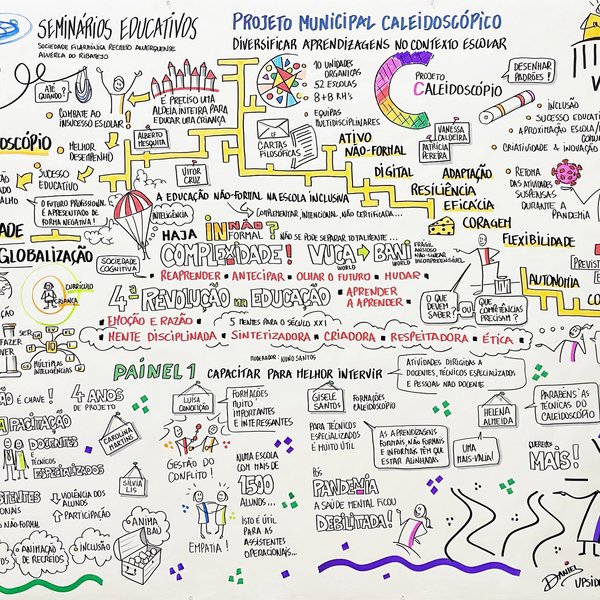 SEMINÁRIOS EDUCATIVOS
SOCIEDADE FILARMÓNICA RECREIO ALVERQUENSE
ALVERCA DO RIBATEJO
PROJETO MUNICIPAL CALEIDOSCÓPICO
DIVERSIFICAR APRENDIZAGENS NO CONTEXTO ESCOLAR
ATÉ QUANDO?
COMBATE AO
INSUCESSO ESCOLAR!
É PRECISO UMA
ALDEIA INTEIRA PARA
EDUCAR UMA CRIANÇA
10 UNIDADES
ORGÂNICAS
52 ESCOLAS
8+8 RH'S
EQUIPAS
MULTIDISCIPLINARES
PROJETO
CALEIDOSCÓPIO
DESENHAR
PADRÕES?
INCLUSÃO
SUCESSO EDUCATI
APROXIMAÇÃO ESCOLA/
CRIATIVIDADE & INOVAÇÃO
OSCÓPIO
MELHOR
DESEMPENHO
SUCESSO
EDUCATIVO
ALBERTO
MESQUITA
VITOR
CRUZ
CARTAS
FILOSÓFICAS
ATIVO
NÃO-FORMAL
DIGITAL
VANESSA
CALDEIRA
PATRÍCIA
PEREIRA
ADAPTAÇÃO
RESILIÊNCIA
EFICÁCIA
CORAGEM
FLEXIBILIDADE
AUTONOMIA
RETOMA
DAS ATIVIDADES
SUSPENSAS
DURANTE A
PANDEMIA
PREVIST
O FUTURO PROFISSIONAL
É APRESENTADO DE
FORMA NEGATIVA!
A EDUCAÇÃO NÃO-FORMAL NA ESCOLA INCLUSIVA
INTELIGÊNCIA
COMPLEMENTAR, INTENCIONAL, NÃO CERTIFICADA...
HAJA IN NÃO? FORMAL? NÃO SE PODE SEPARAR TOTALMENTE...
DADE
GLOBALIZAÇÃO
SOCIEDADE
COGNITIVA
COMPLEXIDADE! VUCA WORLD BANI WORLD
FRÁGIL
ANSIOSO
NÃO-LINEAR
INCOMPREENSÍVEL
REAPRENDER ANTECIPAR OLHAR O FUTURO MUDAR
4ª REVOLUÇÃO NA EDUCAÇÃO
APRENDER
A APRENDER
O QUE
DEVEM
SABER?
OU
QUE
COMPETÊNCIAS
PRECISAM?
CURRÍCULO
CRIANÇA
SER
FAZER
VER
10
MÚLTIPLAS
INTELIGÊNCIAS
EMOÇÃO E RAZÃO
5 MENTES PARA O SÉCULO XXI
MENTE DISCIPLINADA SINTETIZADORA CRIADORA RESPEITADORA ÉTICA
MODERADOR: NUNO SANTOS
PAINEL 1 CAPACITAR PARA MELHOR INTERVIR
ATIVIDADES DIRIGIDAS A
DOCENTES, TÉCNICOS ESPECIALIZADOS
E PESSOAL NÃO DOCENTE
ÃO É CHAVE!
4 ANOS
DE PROJETO
APACITAÇÃO
DOCENTES
E
TÉCNICOS
ESPECIALIZADOS
CAROLINA
MARTINS
LUÍSA
CONCEIÇÃO
FORMAÇÕES
MUITO
IMPORTANTES
E INTERESSANTES
GESTÃO DO
CONFLITO!
GISELE
SANTOS
FORMAÇÕES
CALEIDOSCÓPIO
PARA TÉCNICOS
ESPECIALIZADOS
É MUITO ÚTIL
AS APRENDIZAGENS
FORMAIS, NÃO FORMAIS
E INFORMAIS TÊM QUE
ESTAR ALINHADAS
UMA
MAIS-VALIA!
HELENA
ALMEIDA
PARABÉNS ÀS
TÉCNICAS DO
CALEIDOSCÓPIO
QUEREMOS
MAIS!
NUMA ESCOLA
COM MAIS DE
1500
ALUNOS...
ISTO É ÚTIL
PARA AS
ASSISTENTES
OPERACIONAIS...
PÓS
PANDEMIA
A SAÚDE MENTAL FICOU
DEBILITADA!
SÍLVIA
LIS
STENTES
NAIS
O NÃO-FORMAL
VIOLÊNCIA DOS
ALUNOS
PARTICIPAÇÃO
ANIMA
BAÚ
ANIMAÇÃO DE
RECREIOS
INCLUSÃO
EMPATIA!
DANIEL
UPSID